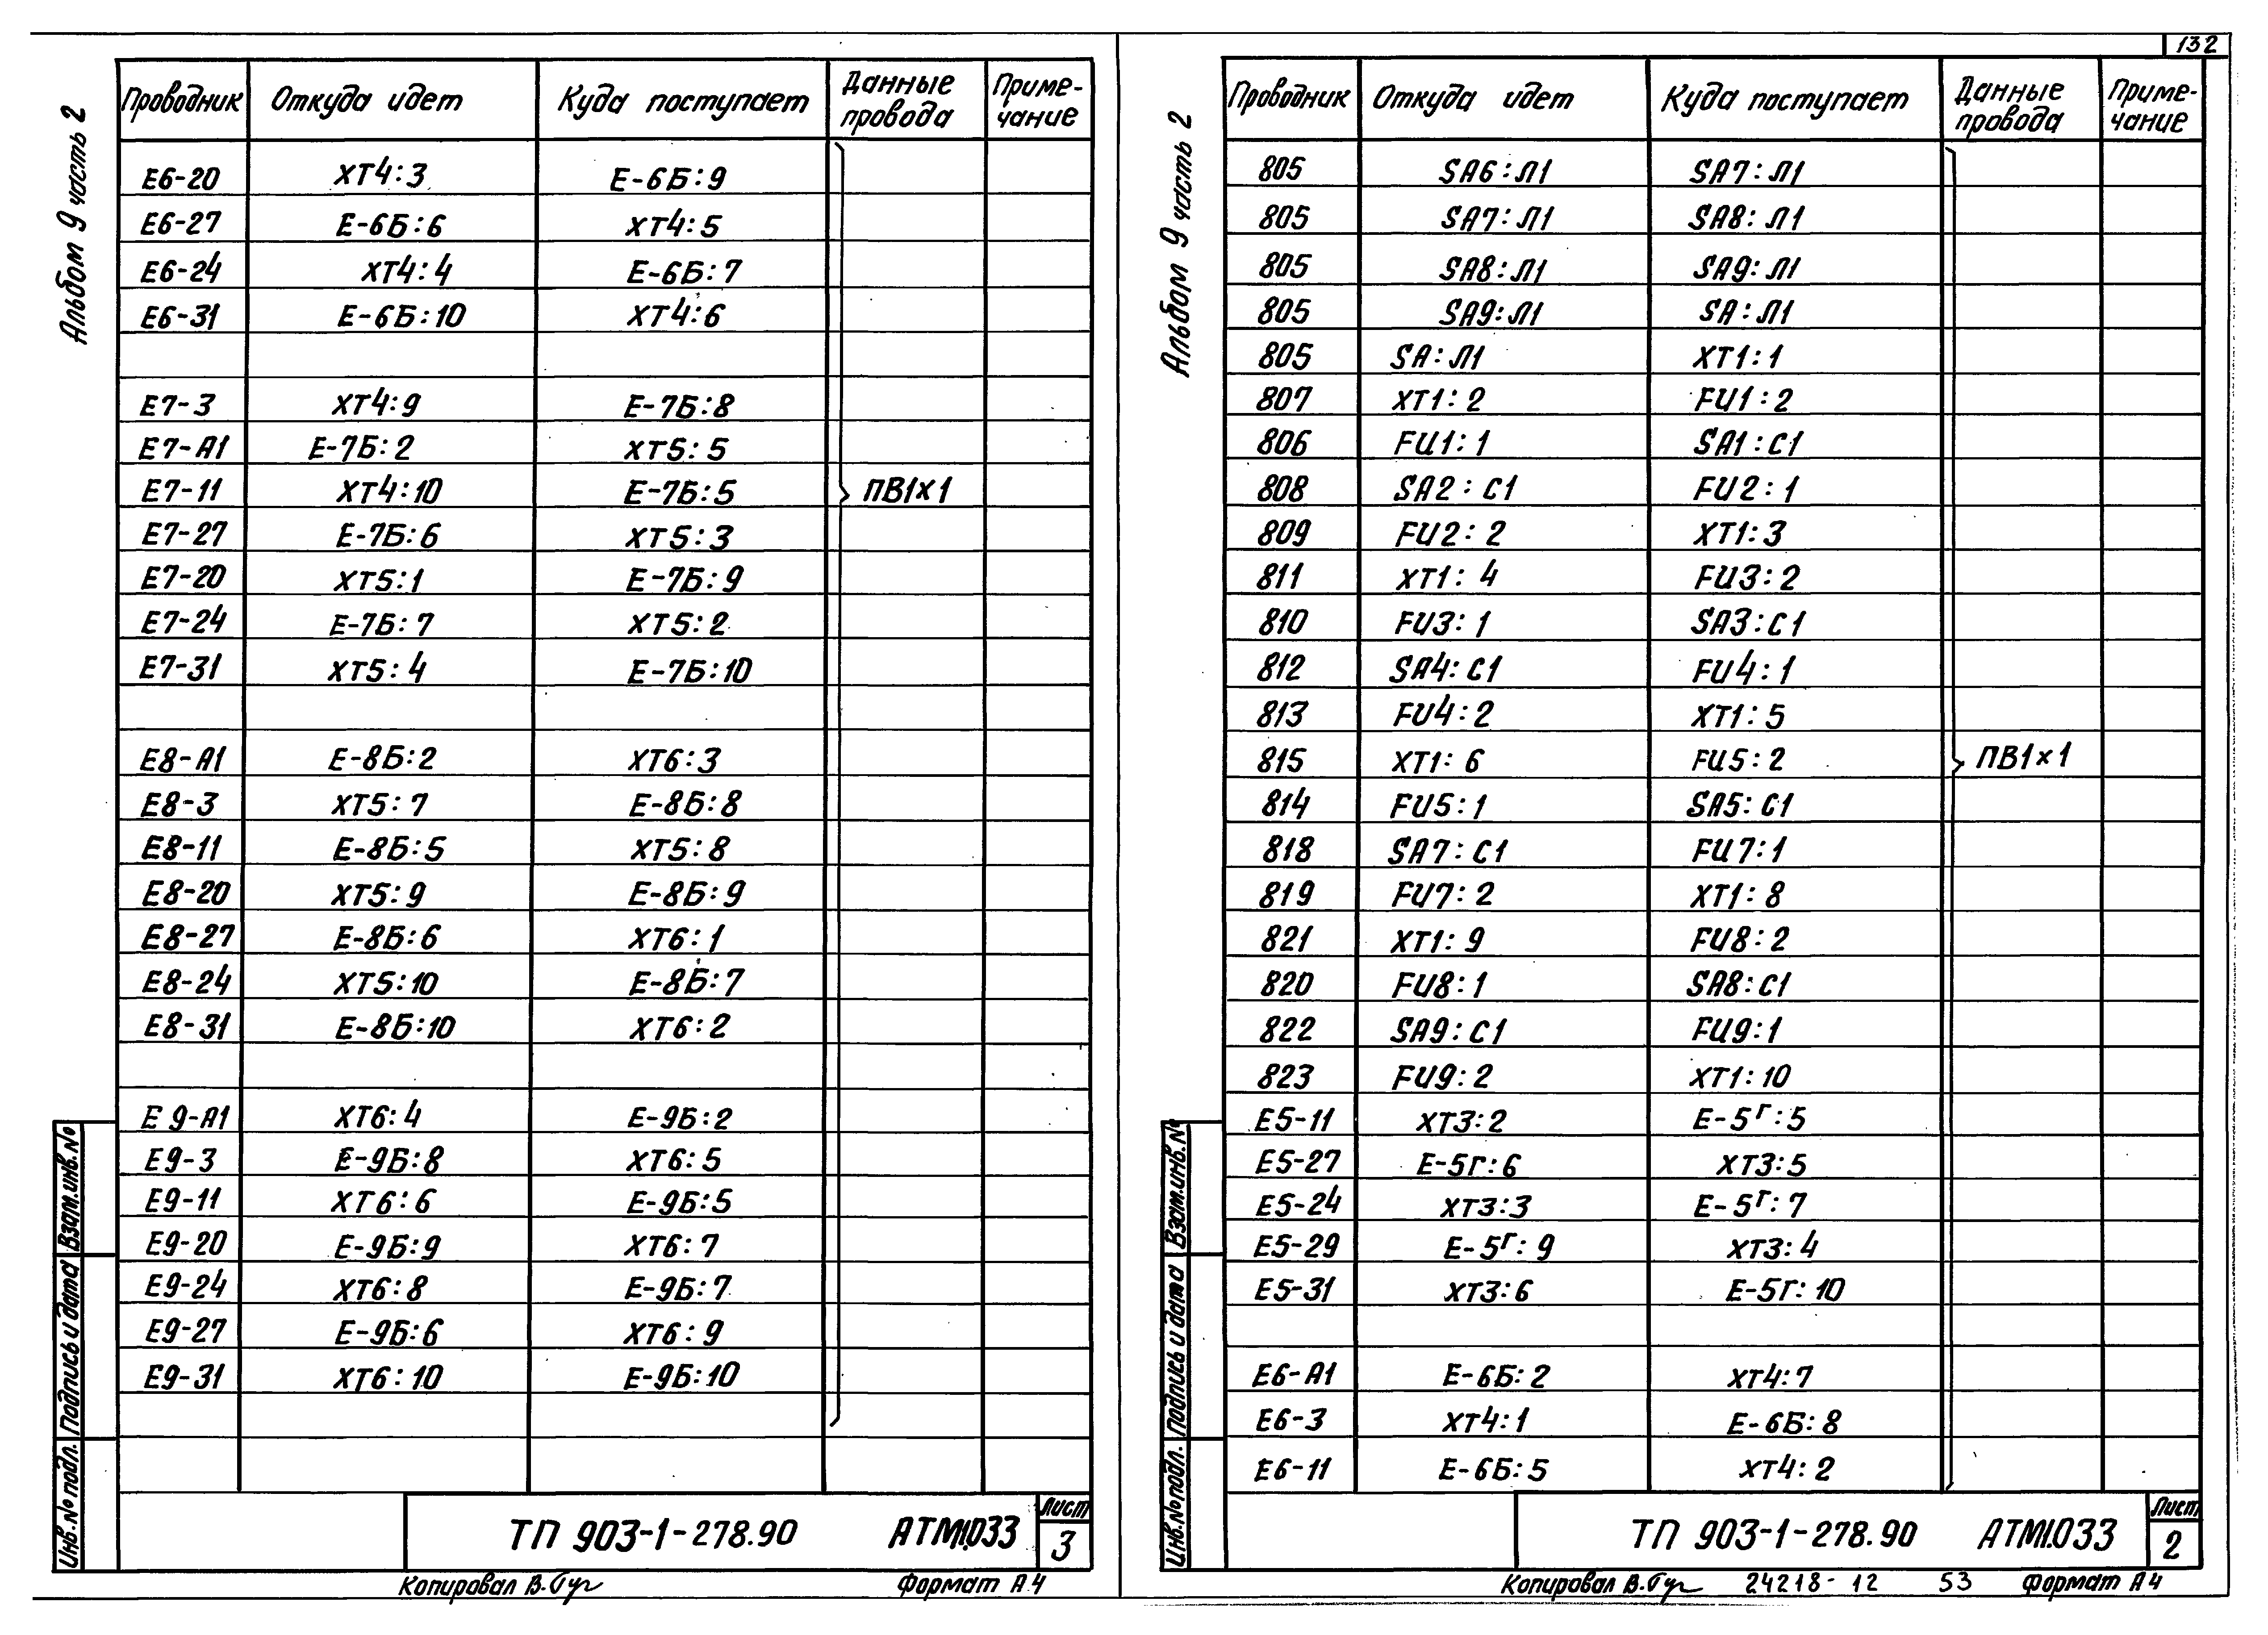 132
Альбом 9 часть 2
Проводник Откуда идет Куда поступает Данные провода Приме-чание
Е6-20 ХТ4:3 Е-6Б:9
Е6-27 Е-6Б:6 ХТ4:5
Е6-24 ХТ4:4 Е-6Б:7
Е6-31 Е-6Б:10 ХТ4:6
Е7-3 ХТ4:9 Е-7Б:8
Е7-А1 Е-7Б:2 ХТ5:5
Е7-11 ХТ4:10 Е-7Б:5 ПВ1×1
Е7-27 Е-7Б:6 ХТ5:3
Е7-20 ХТ5:1 Е-7Б:9
Е7-24 Е-7Б:7 ХТ5:2
Е7-31 ХТ5:4 Е-7Б:10
Е8-А1 Е-8Б:2 ХТ6:3
Е8-3 ХТ5:7 Е-8Б:8
Е8-11 Е-8Б:5 ХТ5:8
Е8-20 ХТ5:9 Е-8Б:9
Е8-27 Е-8Б:6 ХТ6:1
Е8-24 ХТ5:10 Е-8Б:7
Е8-31 Е-8Б:10 ХТ6:2
Е9-А1 ХТ6:4 Е-9Б:2
Е9-3 Е-9Б:8 ХТ6:5
Е9-11 ХТ6:6 Е-9Б:5
Е9-20 Е-9Б:9 ХТ6:7
Е9-24 ХТ6:8 Е-9Б:7
Е9-27 Е-9Б:6 ХТ6:9
Е9-31 ХТ6:10 Е-9Б:10
Взам.инв.№
Подпись и дата
Инв.№ подл.
ТП 903-1-278.90 АТМ1.033 Лист 3
Копировал В.Гуг Формат А4
Альбом 9 часть 2
Проводник Откуда идет Куда поступает Данные провода Приме-чание
805 SA6:Л1 SA7:Л1
805 SA7:Л1 SA8:Л1
805 SA8:Л1 SA9:Л1
805 SA9:Л1 SA:Л1
805 SA:Л1 ХТ1:1
807 ХТ1:2 FU1:2
806 FU1:1 SA1:С1
808 SA2:С1 FU2:1
809 FU2:2 ХТ1:3
811 ХТ1:4 FU3:2
810 FU3:1 SA3:С1
812 SA4:С1 FU4:1
813 FU4:2 ХТ1:5
815 ХТ1:6 FU5:2 ПВ1×1
814 FU5:1 SA5:С1
818 SA7:С1 FU7:1
819 FU7:2 ХТ1:8
821 ХТ1:9 FU8:2
820 FU8:1 SA8:С1
822 SA9:С1 FU9:1
823 FU9:2 ХТ1:10
Е5-11 ХТ3:2 Е-5Г:5
Е5-27 Е-5Г:6 ХТ3:5
Е5-24 ХТ3:3 Е-5Г:7
Е5-29 Е-5Г:9 ХТ3:4
Е5-31 ХТ3:6 Е-5Г:10
Е6-А1 Е-6Б:2 ХТ4:7
Е6-3 ХТ4:1 Е-6Б:8
Е6-11 Е-6Б:5 ХТ4:2
Взам.инв.№
Подпись и дата
Инв.№ подл.
ТП 903-1-278.90 АТМ1.033 Лист 2
Копировал В.Гуг 24218-12 53 Формат А4